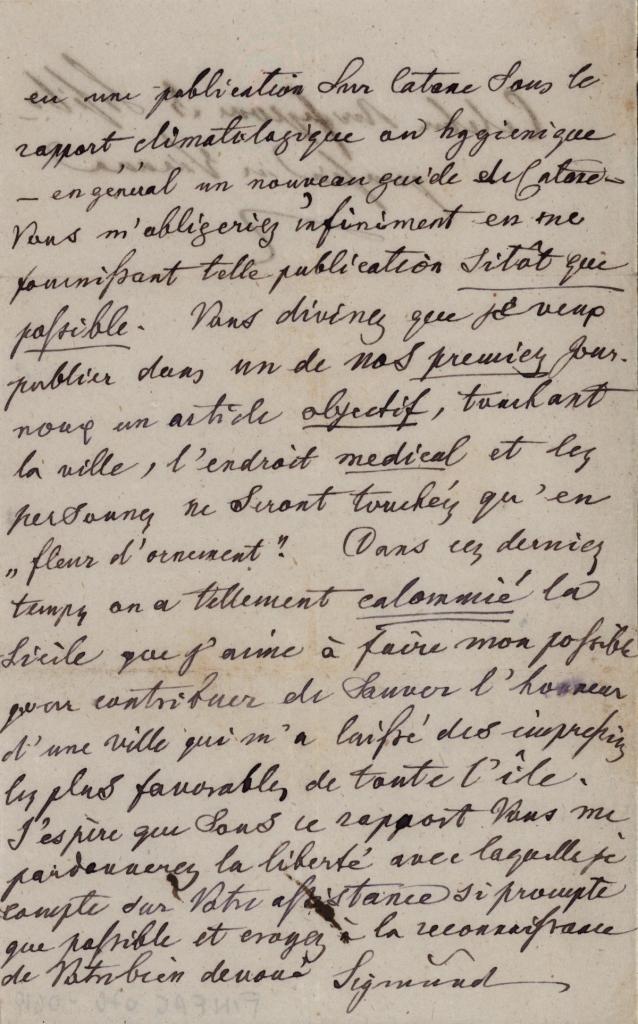 eu une publication sur Catane sous le
rapport climatologique ou hygienique
– en général un nouveau guide de Catane –
Vous m'obligeriez infiniment en me
fournissant telle publication sitôt que
possible. Vous divinez que je veux
publier dans un de nos premiers Jour-
naux un article objectif, touchant
la ville, l'endroit medical et les
personnes ne seront touchés qu'en
„fleur d'ornement". Dans ces derniers
temps on a tellement calommié la
Sicile que j'aime à faire mon possible
pour contribuer de sauver l'honneur
d'une ville qui m'a laissé des impressions
les plus favorables de toute l'île.
J'espère que sous ce rapport Vous me
pardonnerez la liberté avec laquelle je
compte sur Votre assistance si prompte
que possible et croyez à la reconnaissance
de Votre bien devoué Sigmund